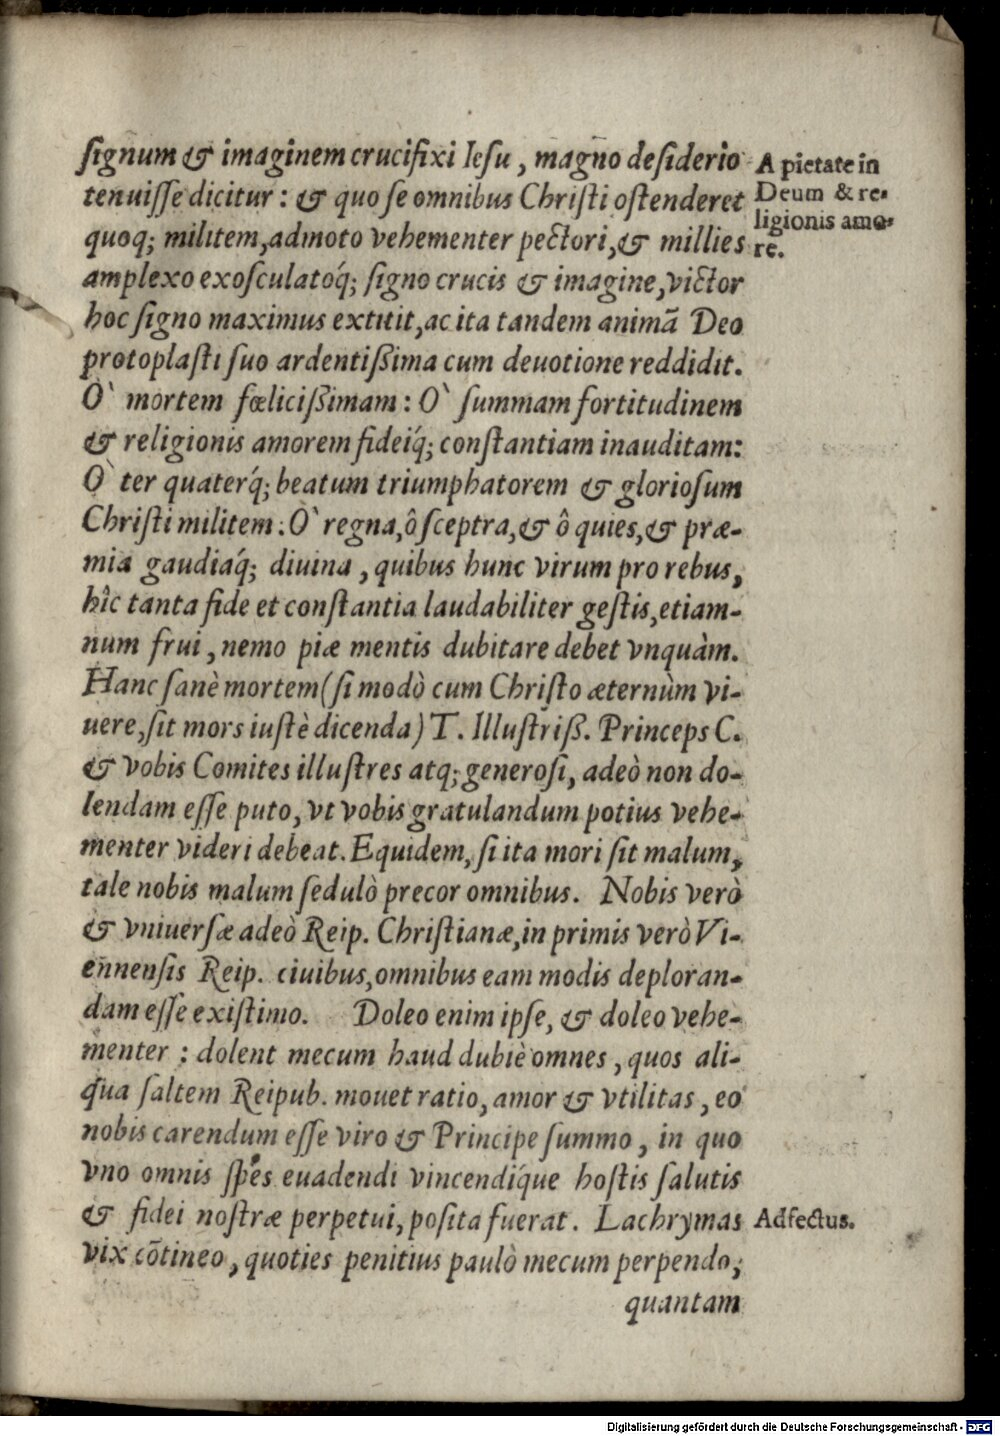 ſignum & imaginem crucifixi Ieſu, magno deſiderio
tenuiſſe dicitur: & quo ſe omnibus Chriſti oſtenderet
quoq; militem, admoto vehementer pectori, & millies
amplexo exoſculatóq́; ſigno crucis & imagine, victor
hoc ſigno maximus extitit, ac ita tandem animã Deo
protoplaſti ſuo ardentißima cum deuotione reddidit.
O` mortem fœlicißimam: O` ſummam fortitudinem
& religionis amorem fideiq́; conſtantiam inauditam:
O` ter quaterq́; beatum triumphatorem & glorioſum
Chriſti militem: O` regna, ô ſceptra, & ô quies, & præ-
mia gaudiaq́; diuina, quibus hunc virum pro rebus,
hîc tanta fide et conſtantia laudabiliter geſtis, etiam-
num frui, nemo piæ mentis dubitare debet vnquàm.
Hanc ſanè mortem (ſi modò cum Chriſto æternùm vi-
uere, ſit mors iuſtè dicenda) T. Illuſtriß. Princeps C.
& vobis Comites illuſtres atq; generoſi, adeò non do-
lendam eſſe puto, vt vobis gratulandum potius vehe-
menter videri debeat. Equidem, ſi ita mori ſit malum,
tale nobis malum ſedulò precor omnibus. Nobis verò
& vniuerſæ adeò Reip. Chriſtianæ, in primis verò Vi-
ennenſis Reip. ciuibus, omnibus eam modis deploran-
dam eſſe exiſtimo. Doleo enim ipſe, & doleo vehe-
menter: dolent mecum haud dubiè omnes, quos ali-
qua ſaltem Reipub. mouet ratio, amor & vtilitas, eo
nobis carendum eſſe viro & Principe ſummo, in quo
vno omnis ſpes euadendi vincendíque hoſtis ſalutis
& fidei noſtræ perpetui, poſita fuerat. Lachrymas
vix cõtineo, quoties penitius paulò mecum perpendo,
quantam
A pietate in
Deum & re-
ligionis amo-
re.
Adfectus.
Digitalisierung gefördert durch die Deutsche Forschungsgemeinschaft - DFG